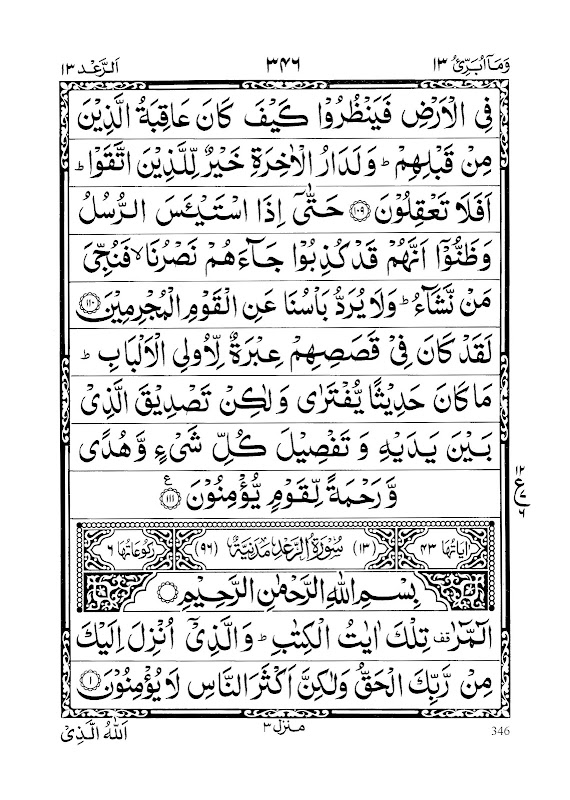 وَمَآ اُبَرِّئُ ۱۳ ۳۴۶ اَلرَّعْد ۱۳
فِی الْاَرْضِ فَیَنْظُرُوْا كَیْفَ كَانَ عَاقِبَةُ الَّذِیْنَ
مِنْ قَبْلِهِمْ ؕ وَلَدَارُ الْاٰخِرَةِ خَیْرٌ لِّلَّذِیْنَ اتَّقَوْا ؕ
اَفَلَا تَعْقِلُوْنَ ۝۱۰۹ حَتّٰۤی اِذَا اسْتَیْـَٔسَ الرُّسُلُ
وَظَنُّوْۤا اَنَّهُمْ قَدْ كُذِبُوْا جَآءَهُمْ نَصْرُنَا ۙ فَنُجِّیَ
مَنْ نَّشَآءُ ؕ وَلَا یُرَدُّ بَاْسُنَا عَنِ الْقَوْمِ الْمُجْرِمِیْنَ ۝۱۱۰
لَقَدْ كَانَ فِیْ قَصَصِهِمْ عِبْرَةٌ لِّاُولِی الْاَلْبَابِ ؕ
مَا كَانَ حَدِیْثًا یُّفْتَرٰی وَلٰكِنْ تَصْدِیْقَ الَّذِیْ
بَیْنَ یَدَیْهِ وَ تَفْصِیْلَ كُلِّ شَیْءٍ وَّهُدًی
وَّرَحْمَةً لِّقَوْمٍ یُّؤْمِنُوْنَ ۝۱۱۱ ع
۱۲
ع ۷
۶
اٰیَاتُهَا ۴۳ (۱۳) سُوْرَةُ الرَّعْدِ مَدَنِیَّةٌ (۹۶) رُكُوْعَاتُهَا ۶
بِسْمِ اللّٰهِ الرَّحْمٰنِ الرَّحِیْمِ ۝
الٓـمّٓرٰ قف تِلْكَ اٰیٰتُ الْكِتٰبِ ؕ وَالَّذِیْۤ اُنْزِلَ اِلَیْكَ
مِنْ رَّبِّكَ الْحَقُّ وَلٰكِنَّ اَكْثَرَ النَّاسِ لَا یُؤْمِنُوْنَ ۝۱
اَللّٰهُ الَّذِیْ منزل ۳ 346